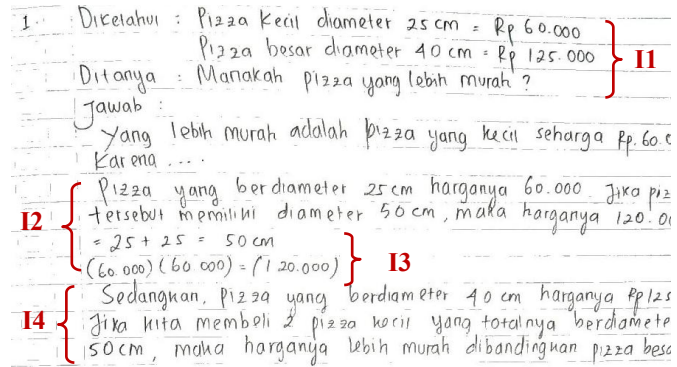 1. Diketahui : Pizza kecil diameter 25 cm = Rp 60.000
Pizza besar diameter 40 cm = Rp 125.000
I1
Ditanya : Manakah pizza yang lebih murah ?
Jawab :
Yang lebih murah adalah pizza yang kecil seharga Rp. 60.
Karena ....
Pizza yang berdiameter 25 cm harganya 60.000. Jika piz
I2
tersebut memiliki diameter 50 cm, maka harganya 120.0
= 25 + 25 = 50 cm
(60.000) (60 000) = (120.000)
I3
Sedangkan, Pizza yang berdiameter 40 cm harganya Rp 125
I4
Jika kita membeli 2 pizza kecil yang totalnya berdiamete
50 cm, maka harganya lebih murah dibandingkan pizza besa